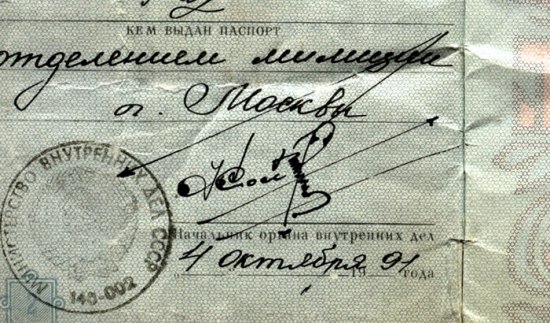 КЕМ ВЫДАН ПАСПОРТ
отделением милиции
г. Москвы
Начальник органа внутренних дел
„4 октября 1991 года
МИНИСТЕРСТВО ВНУТРЕННИХ ДЕЛ СССР
140-002